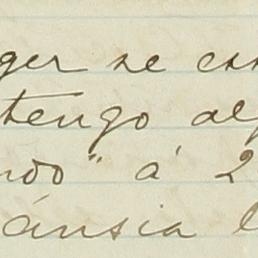 ger se es
tengo al
ndo" á 2
ánsia l